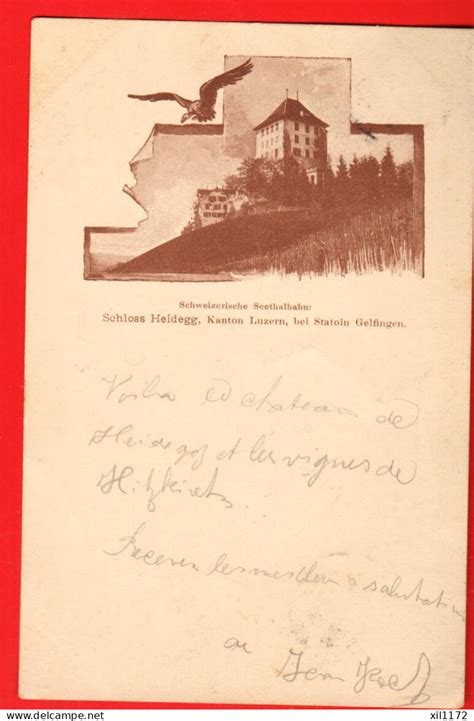 Schweizerische Seethalbahn:
Schloss Heidegg, Kanton Luzern, bei Statoin Gelfingen.
Voilà le chateau de
Heidegg et les vignes de
Hitzkirch
Recevez les meilleures salutations
de Jean
delcampe.net
xil1172